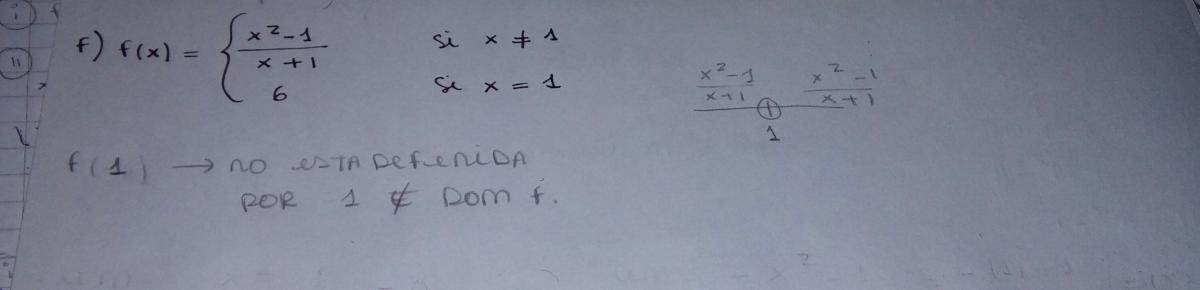 f) f(x) = { x²-1 / x+1 si x ≠ 1
6 si x = 1
x²-1 / x+1 x²-1 / x+1
1
f(1) → no ESTA DEFENIDA
POR 1 ∉ Dom f.